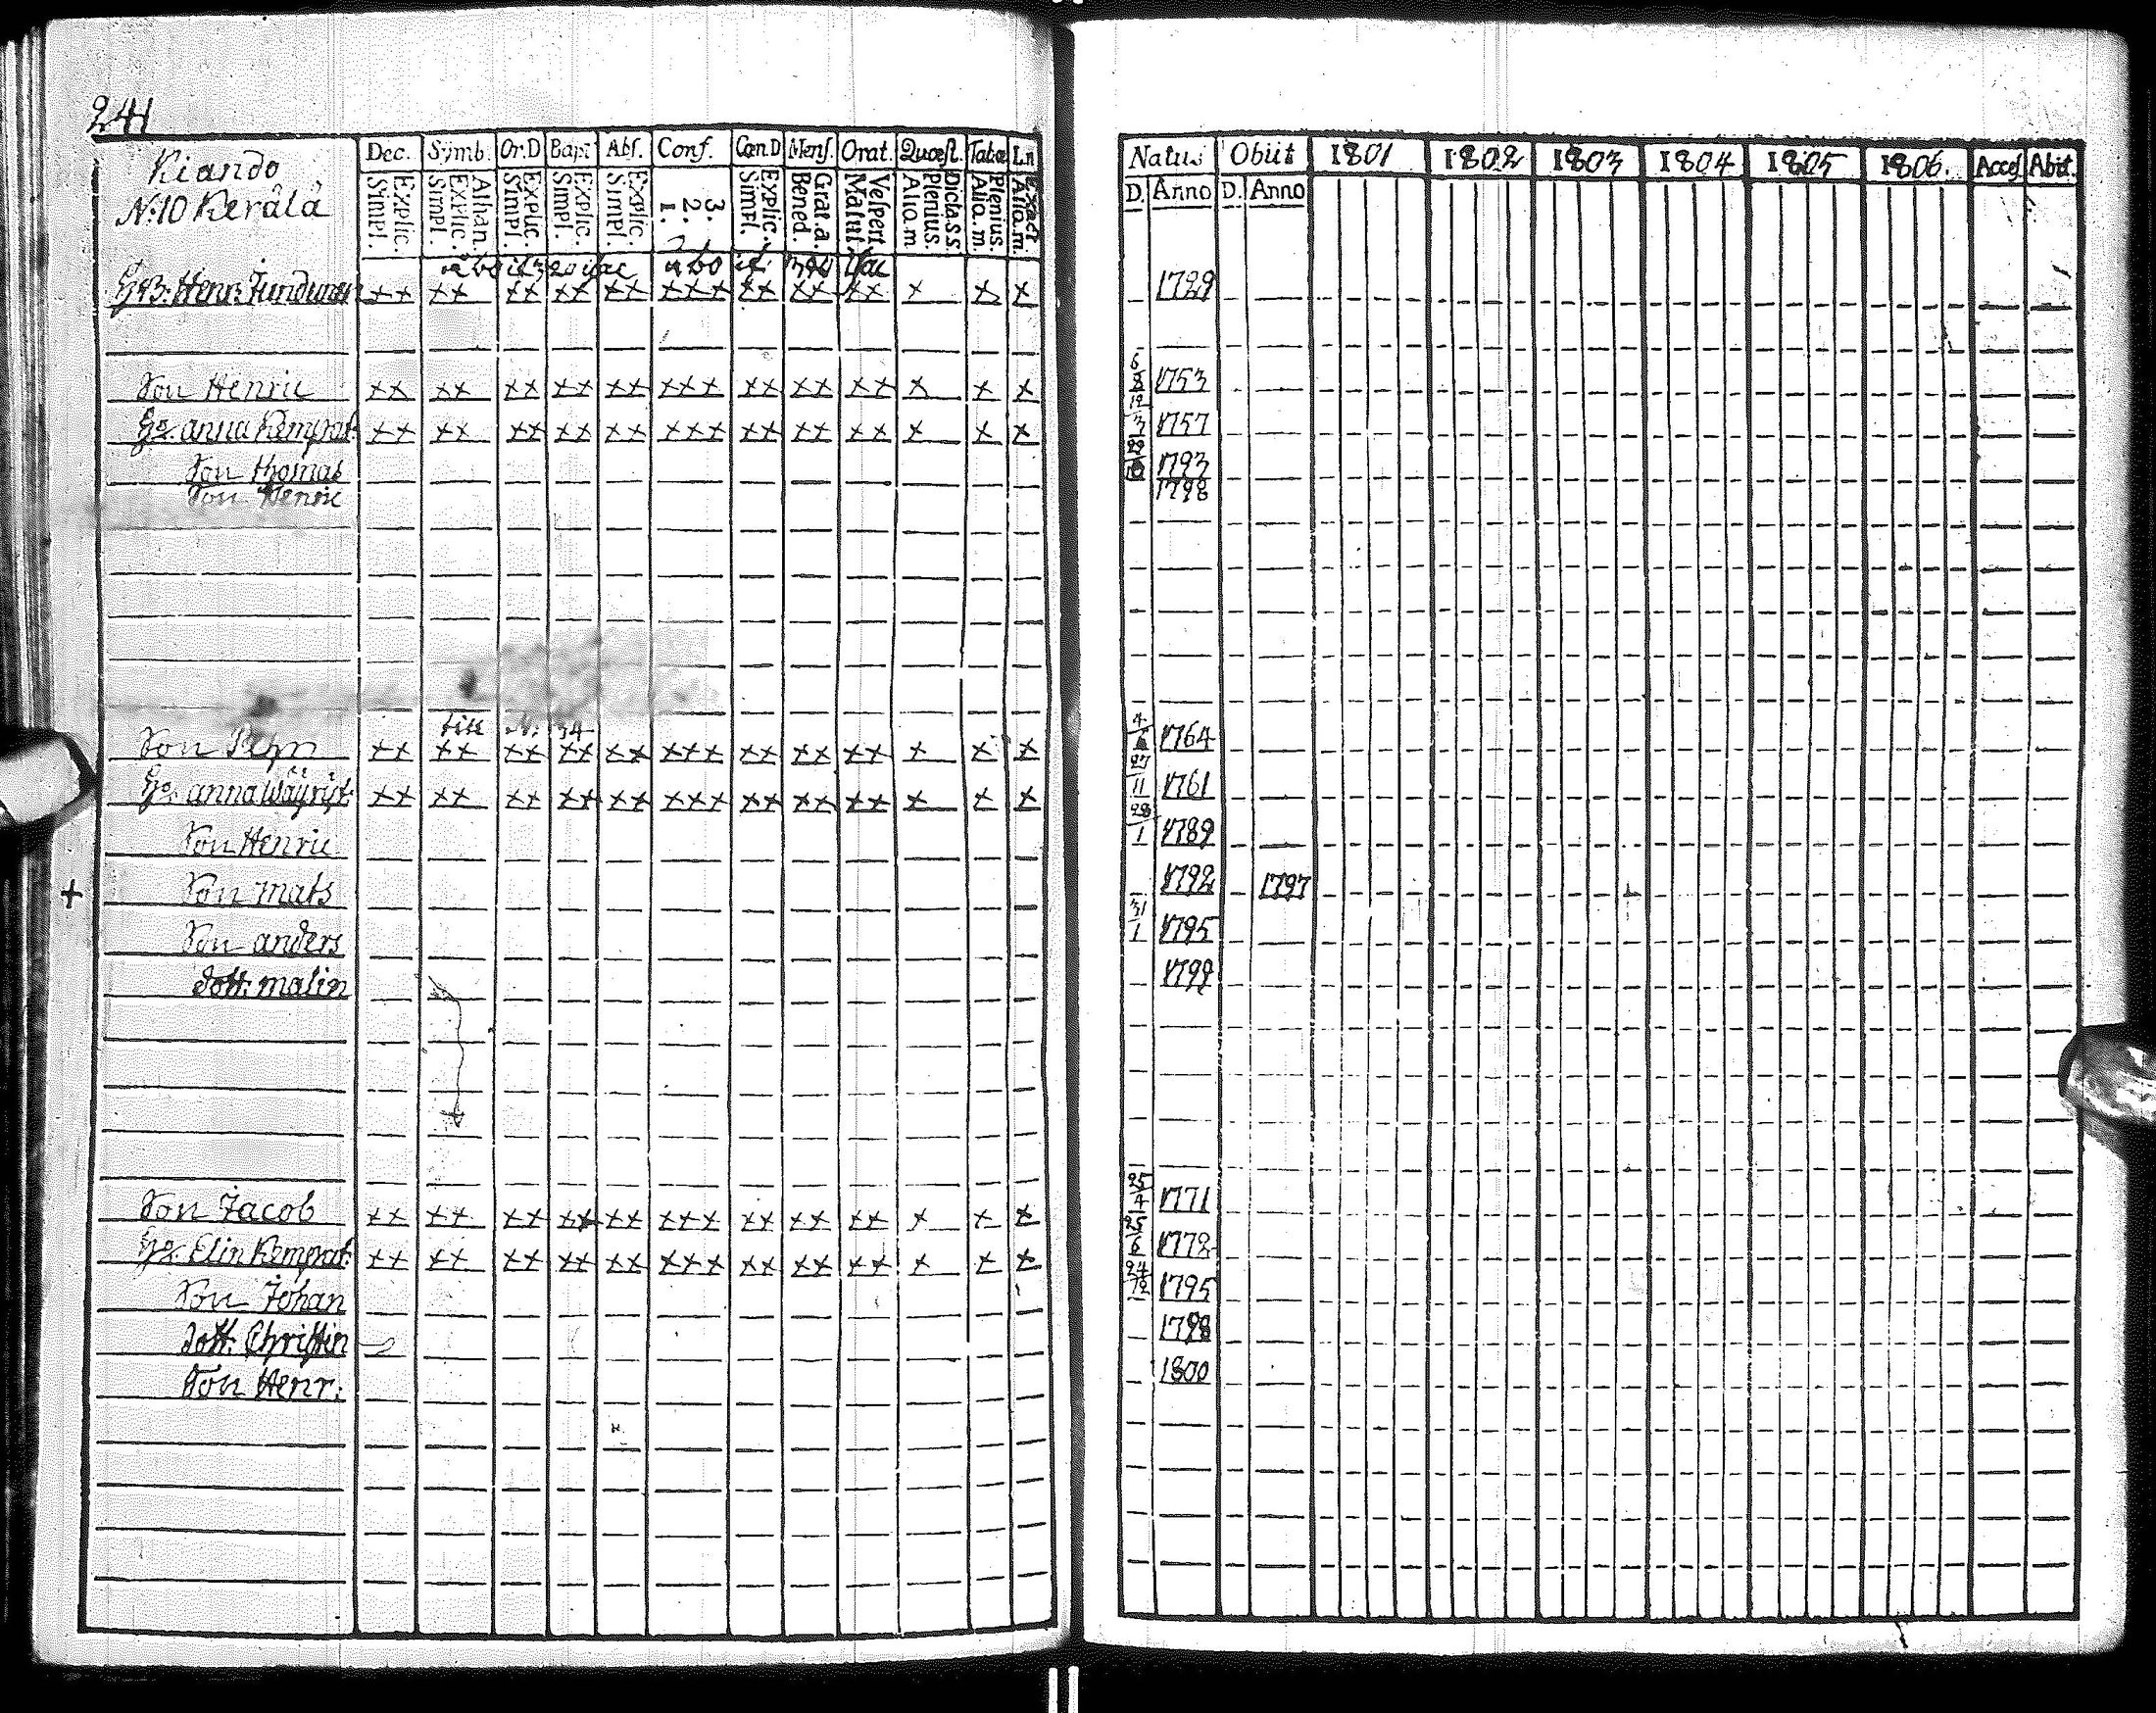 241
Kiando
N:10 Kerälä
Dec. Symb. Or.D Bapt Abs. Conf. Cœn.D Mens. Orat. Quæst. Tabæ
Explic. Simpl. Athan. Explic. Simpl. Explic. Simpl. Explic. Simpl. Explic. Simpl. 3. 2. 1. Explic. Simpl. Grat. a. Bened. Vespert. Matut. Dicta. s.s. Plenius. Alio. m. Plenius. Alio. m. Exact Alio. m.
Natus Obiit 1801 1802 1803 1804 1805 1806. Acces Abit.
D. Anno D. Anno
Henr: 1729
Son Henric 6/8 1753
Hu. anna Kempat. 12/3 1757
Son thomas 1793
Son Henric 1798
N: 34
Son 1764
Hu. anna 27/11 1761
Son Henric 28/1 1789
+ Son mats 1792 1797
Son anders 31/1 1795
Dott. malin 1799
Son Jacob 25/4 1771
Hu. Elin Kempat. 25/6 1772
Son Johan 24/12 1795
Dott. Christin 1798
Son Henr: 1800